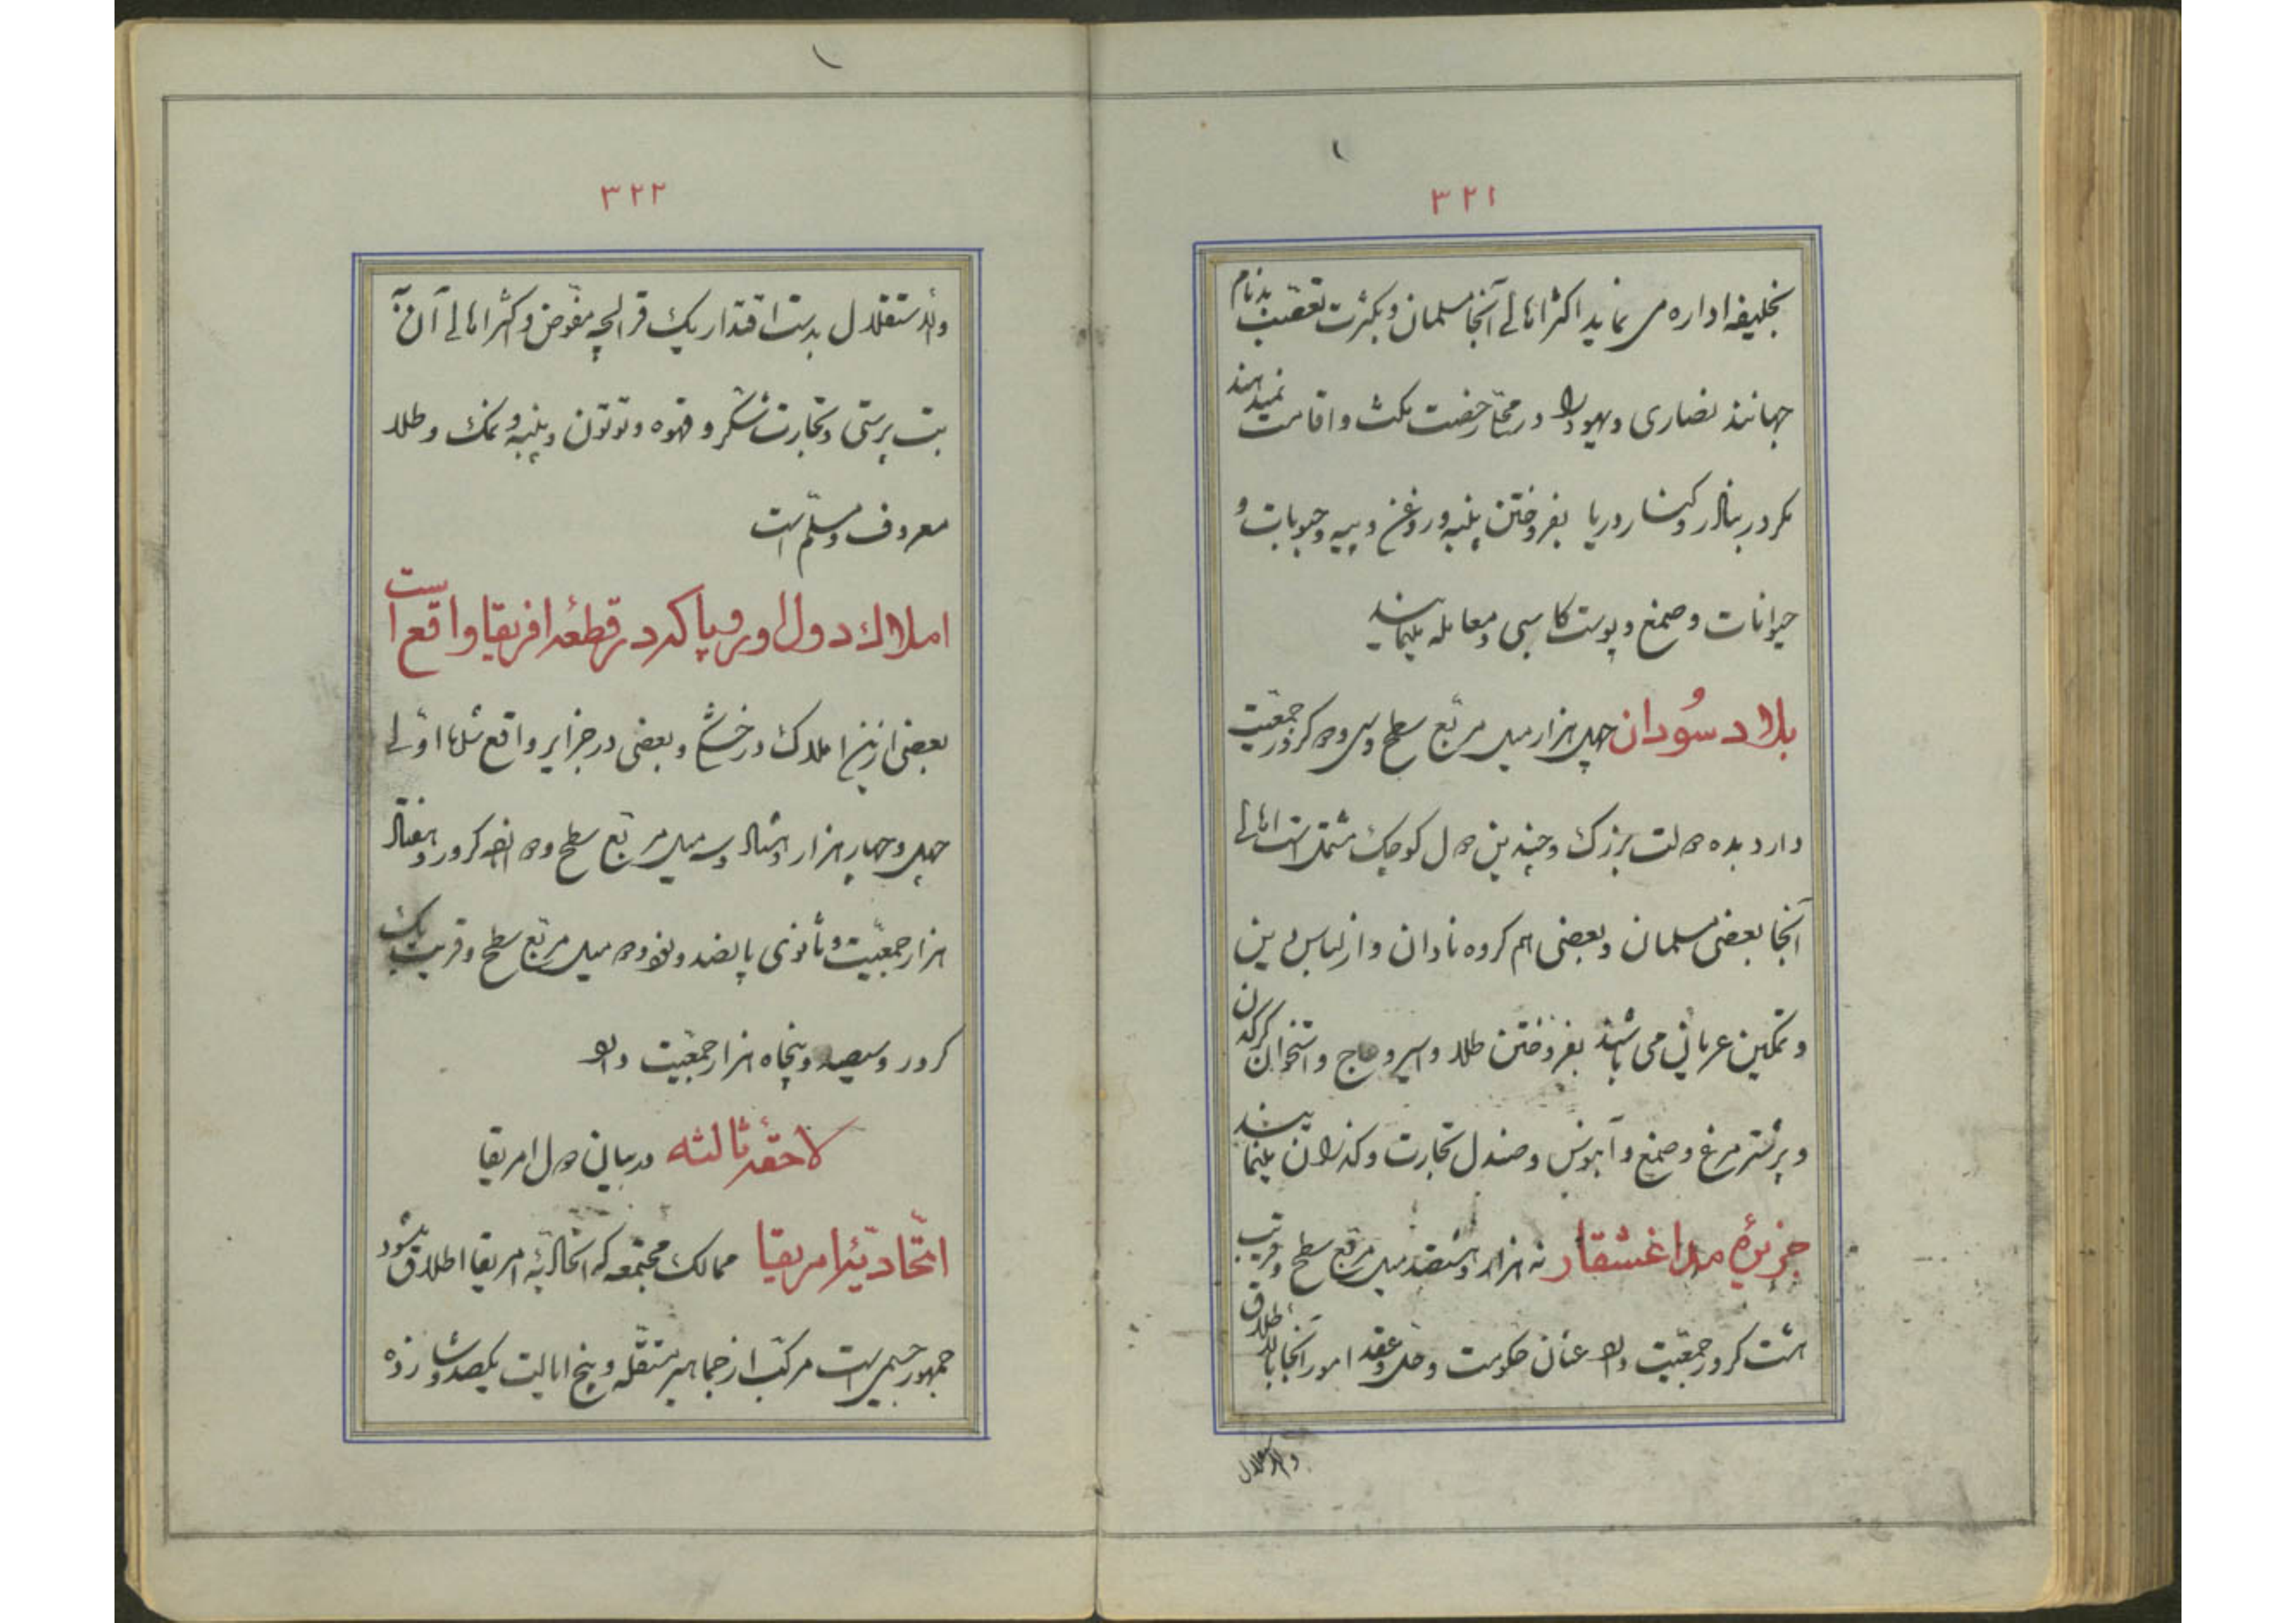 ۳۲۱
بخلیفه اداره می نماید اکثر اهالے آنجا مسلمان و بکثرت تعصّب بدنام
جهانند نصاری و یهود را در محا رخصت مکث و اقامت نمیدهند
مکر در بنادر و کنار دریا بفروختن پنبه و روغن و پیه و حبوبات و
حیوانات و صمغ و پوست کاسبی و معامله مینمایند
بلاد سُودان چهل هزار میل مربّع سطح و سی و دو کرور جمعیّت
دارد بده دولت بزرک و چندین دول کوچک مشتمل است اهالے
آنجا بعضی مسلمان و بعضی هم کروه نادان و از لباس دین
و تمکین عریانی می باشند بفروختن طلا و اسیر و عاج و استخوان کرکدن
و پر شترمرغ و صمغ و آبنوس و صندل تجارت و کذران مینمایند
جزیرۀ مداغشقار نه هزار و هشتصد میل مربّع سطح و قریب
هشت کرور جمعیّت دارد عنان حکومت و حل و عقد امور آنجا بالاطلاق
والاستقلال
۳۲۲
والاستقلال بدست اقتدار یک قرالچه مفوّض و اکثر اهالے آن
بت پرستی و تجارت شکر و قهوه و توتون و پنبه و نمک و طلا
معروف و مسلّم است
املاك دول اوروپا که در قطعۀ افریقا واقع است
بعضی ازین املاک در خشکی و بعضی در جزایر واقع شده اوّلے
چهل و چهار هزار و هشتاد و سه میل مربّع سطح و دوازده کرور و هفتاد
هزار جمعیّت و ثانوی پانصد و نود و دو میل مربّع سطح و قریب یک
کرور و سیصد و پنجاه هزار جمعیّت دارد
لاحقۀ ثالثه در بیان دول امریقا
اتّحادیّۀ امریقا ممالک مجتمعه که اتحادیّۀ امریقا اطلاق میشود
جمهور جسیمی است مرکّب از جماهیر مستقلّه و پنج ایالت یکصد و شانزده